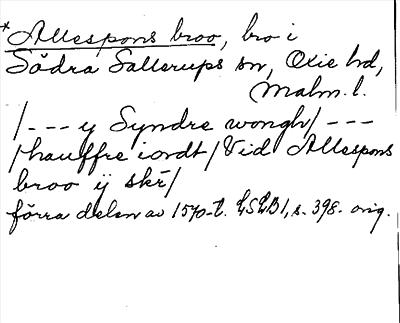 *Allespons broo, bro i
Södra Sallerups sn, Oxie hd,
Malm. l.
/--- y Syndre wongh/---
/hauffre iordt/Vid Allespons
broo ÿ skr̄/
förra delen av 1570-t. LSLB1, s. 398. orig.